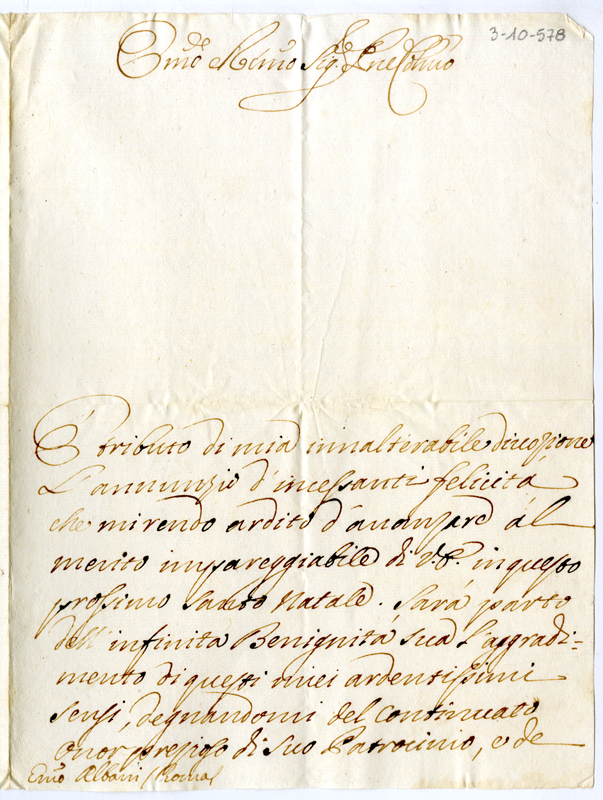 3-10-578
Emo Rmo Sig.r Sig.r Prne Colmo
È tributo di mia inalterabile divozione
L'annunzio d'incessanti felicità
che mi rendo ardito d'avanzare al
merito impareggiabile di V.E. in questo
prossimo Santo Natale. Sarà parto
dell'infinita Benignità sua l'aggradi=
mento di questi miei ardentissimi
sensi, degnandomi del continuato
onor pregiato di suo Patrocinio, e de
Emo Albani (Roma)